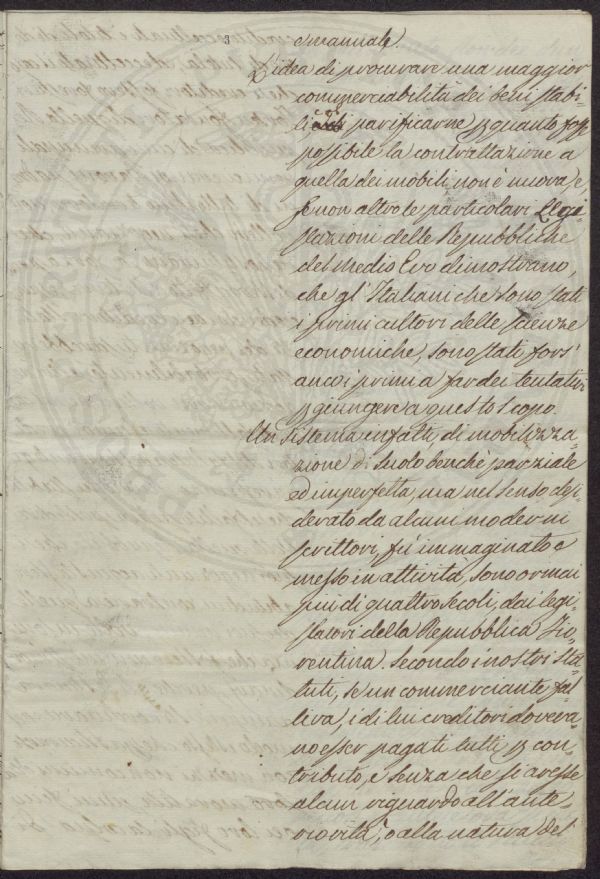 3
e manuale.
L'idea di procurare una maggior
commerciabilità dei beni stabi-
li col parificarne p quanto foße
poßibile la contrattazione a
quella dei mobili, non è nuova, e
se non altro le particolari Legi-
slazioni delle Repubbliche
del Medio Evo dimostrano,
che gl'Italiani che sono stati
i primi cultori delle scienze
economiche, sono stati fors'
anco i primi a far dei tentativi
p giungere a questo scopo.
Un sistema infatti, di mobilizza-
zione di suolo benchè parziale
ed imperfetta, ma nel senso desi-
derato da alcuni moderni
scrittori, fù immaginato e
messo in attività, sono ormai
più di quattro secoli, dai legi-
slatori della Repubblica Fio-
rentina. Secondo i nostri Sta-
tuti, se un commerciante fal-
liva, i di lui creditori doveva-
no esser pagati tutti p con-
tributo, e senza che si avesse
alcun riguardo all'ante-
riorità, o alla natura del